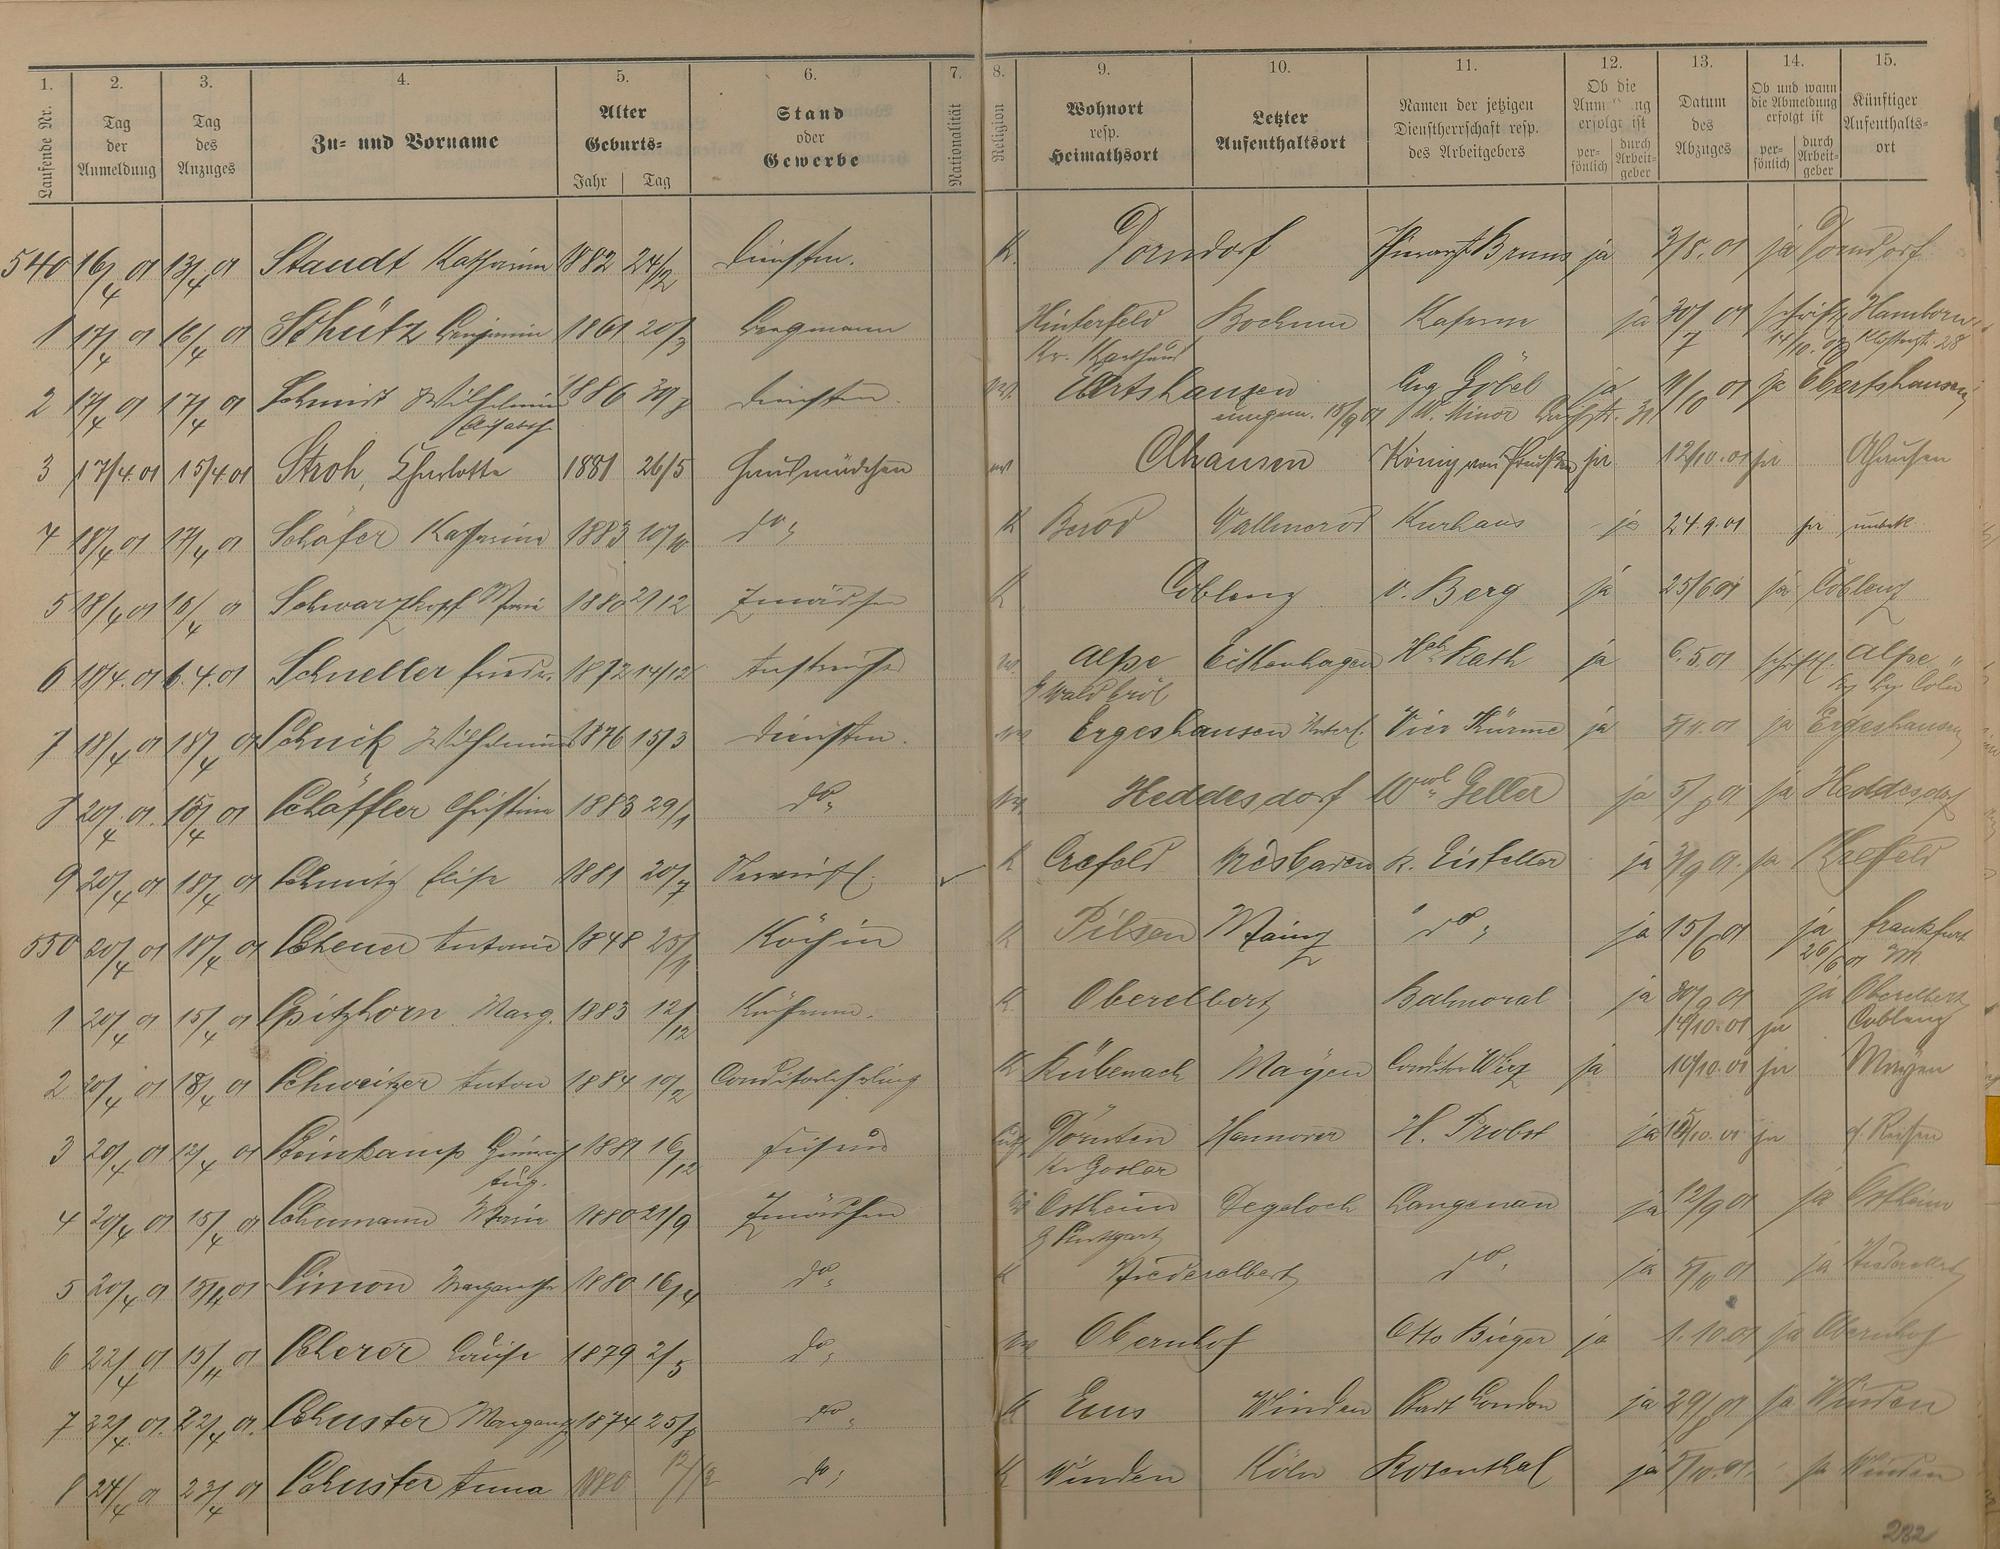 1. 2. 3. 4. 5. 6. 7. 8. 9. 10. 11. 12. 13. 14. 15.
Laufende Nr. Tag der Anmeldung Tag des Anzuges Zu- und Vorname Alter Geburts- Jahr Tag Stand oder Gewerbe Nationalität Religion Wohnort resp. Heimathsort Letzter Aufenthaltsort Namen der jetzigen Dienstherrschaft resp. des Arbeitgebers Ob die erfolgt ist persönlich durch Arbeitgeber Datum des Abzuges Ob und wann die Abmeldung erfolgt ist persönlich durch Arbeitgeber Künftiger Aufenthaltsort
540 16/4 01 13/4 01 Staudt Katharina 1882 24/12 Dienstm. K. Dorndorf Bruns ja 3/8. 01 ja Dorndorf
1 17/4 01 16/4 01 Schütz Benjamin 1861 20/3 Bergmann Hinterfeld Bochum Kaserne ja 30/7 01 schriftl. Hamborn
Kr. Karthaus 14/10. 28
2 17/4 01 17/4 01 Schmidt Wilhelmine 1886 30/8 Dienstm. Ebertshausen Aug. Göbel ja 11/10 01 ja Ebertshausen
Elisabeth 18/9 01 W. Minor 31
3 17/4.01 15/4.01 Stroh, Charlotte 1881 26/5 Hausmädchen ev Ahausen König von Preußen ja 12/10.01 ja Ahausen
4 18/4 01 17/4 01 Schäfer Katharina 1883 10/10 do K Berod Wallmerod Kurhaus ja 24.9.01 ja unbek
5 18/4 01 15/4 01 Schwarzkopf Marie 1880 2/12 Zmädchen K Coblenz v. Berg ja 25/6 01 ja Coblenz
6 18/4.01 6.4.01 Schneller Friedr. 1872 14/12 Anstreicher ev. Alpe Eckenhagen Hch Rath ja 6.5.01 schriftl. Alpe
Waldbröl Cöln
7 18/4 01 18/4 01 Schuck Wilhelmine 1876 15/3 Dienstm. ev Ergeshausen Vier Türme ja 5/11.01 ja Ergeshausen
8 20/4 01. 15/4 01 Schäffler Christina 1883 29/1 do ev Heddesdorf Wwe Geller ja 5/8 01 ja Heddesdorf
9 20/4 01 18/4 01 Schmitz Elise 1881 20/7 K Crefeld Wiesbaden R. Eisfeller ja 3/9 01. ja Krefeld
550 20/4 01 18/4 01 Scheuer Antonie 1848 25/11 Köchin K Pilsen Mainz do ja 15/6 01 ja Frankfurt
26/6 01 M
1 20/4 01 15/4 01 Spitzhorn Marg. 1883 12/12 K. Oberelbert Balmoral ja 30/9 01 ja Oberelbert
14/10.01 ja Coblenz
2 20/4 01 18/4 01 Schweitzer Anton 1884 10/2 Conditorlehrling K Rübenach Mayen Conditor ja 10/10.01 ja Mayen
3 20/4 01 12/4 01 Steinkamp Heinrich 1881 16/12 Friseur Dörnten Hannover H. Probst ja 15/10.01 ja a. Reisen
Aug. Kr Goslar
4 20/4 01 15/4 01 Schumann Marie 1880 21/9 Zmädchen Ostheim Degeloch Langenau ja 12/9 01 ja Ostheim
Stuttgart
5 20/4 01 15/4 01 Simon Margarethe 1880 16/4 do K Niederelbert do ja 5/10 01 ja Niederelbert
6 22/4 01 15/4 01 Scherer Louise 1879 2/5 do ev Obernhof Otto Bieger ja 1.10.01 ja Obernhof
7 22/4 01. 22/4 01. Schuster 1874 25/8 do K Ems Winden Stadt London ja 29/8 01 ja Winden
8 24/4 01 23/4 01 Schuster Anna 1880 do K Winden Köln Rosenthal ja 5/10.01. ja Winden
232